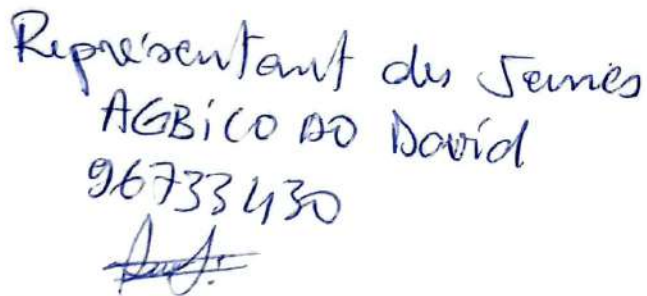 Représentant des Jeunes
AGBICO DO David
96733430